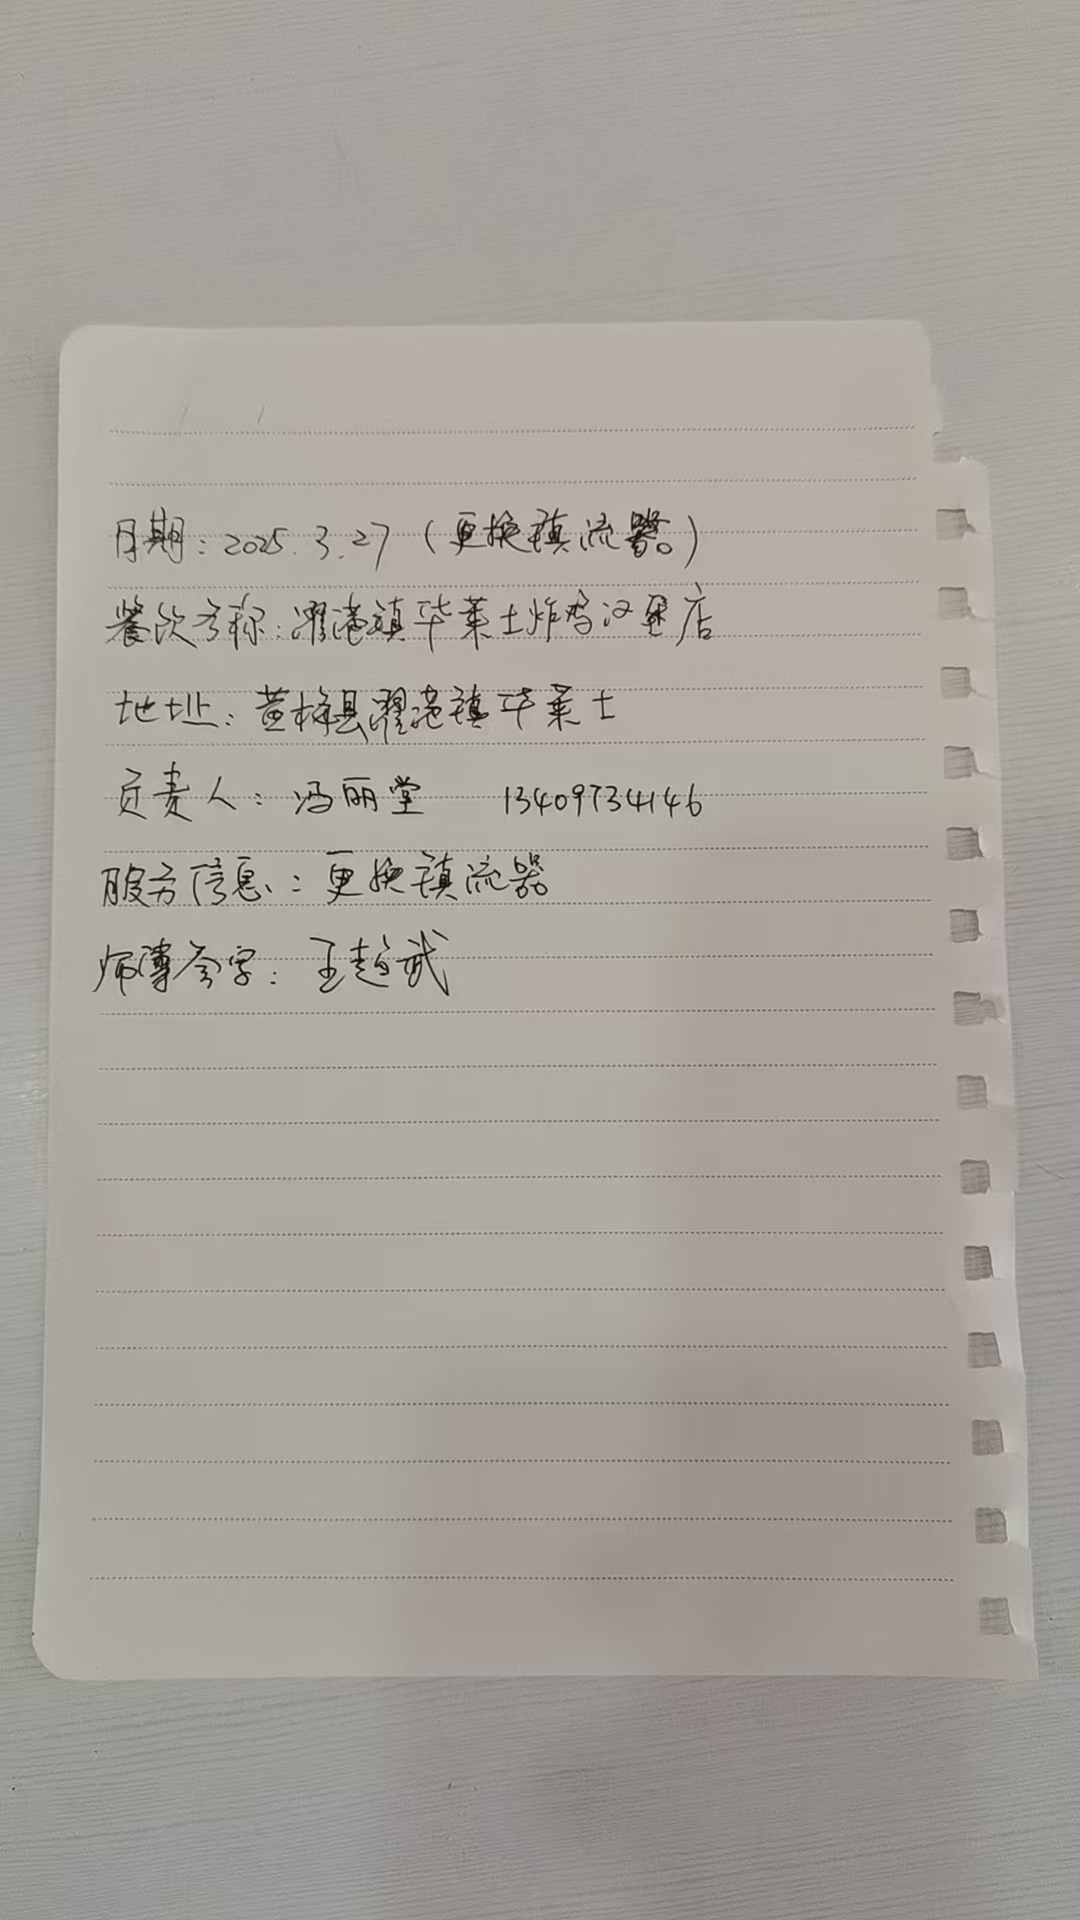 日期：2025.3.27（更换镇流器。）
餐饮名称：濯港镇毕莱士炸鸡汉堡店
地址：黄梅县濯港镇毕莱士
负责人：冯丽堂 13409734146
服务信息：更换镇流器
师傅签字：王赵武